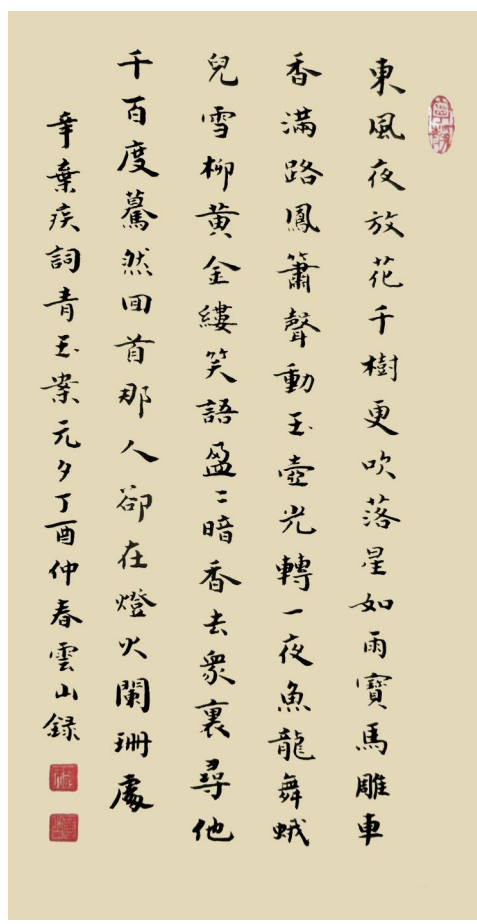 東風夜放花千樹更吹落星如雨寳馬雕車
香滿路鳳簫聲動玉壺光轉一夜魚龍舞蛾
兒雪柳黄金縷笑語盈〻暗香去衆裏尋他
千百度驀然回首那人卻在燈火闌珊處
辛棄疾詞青玉案元夕丁酉仲春雲山録